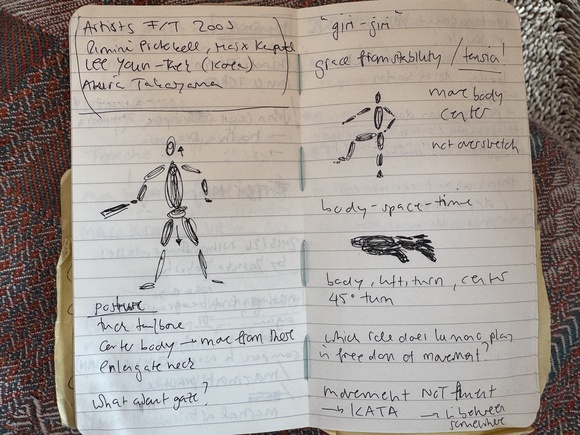 Artists F/T 2009
Rimini Protokoll,
Lee Youn-(Korea)
Akira Takayama
posture
tuck tailbone
center body → move from there
enlongate neck
what about gate?
"giri-giri"
grace from stability / tension!
move body
center
not overstretch
body-space-time
body, left, turn, center
45° turn
which role does play
in freedom of movement?
movement NOT fluent
→ KATA → in between
somewhere